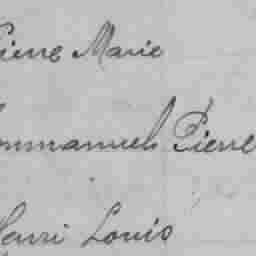 Pierre Marie
Emmanuel Pierre
Henri Louis